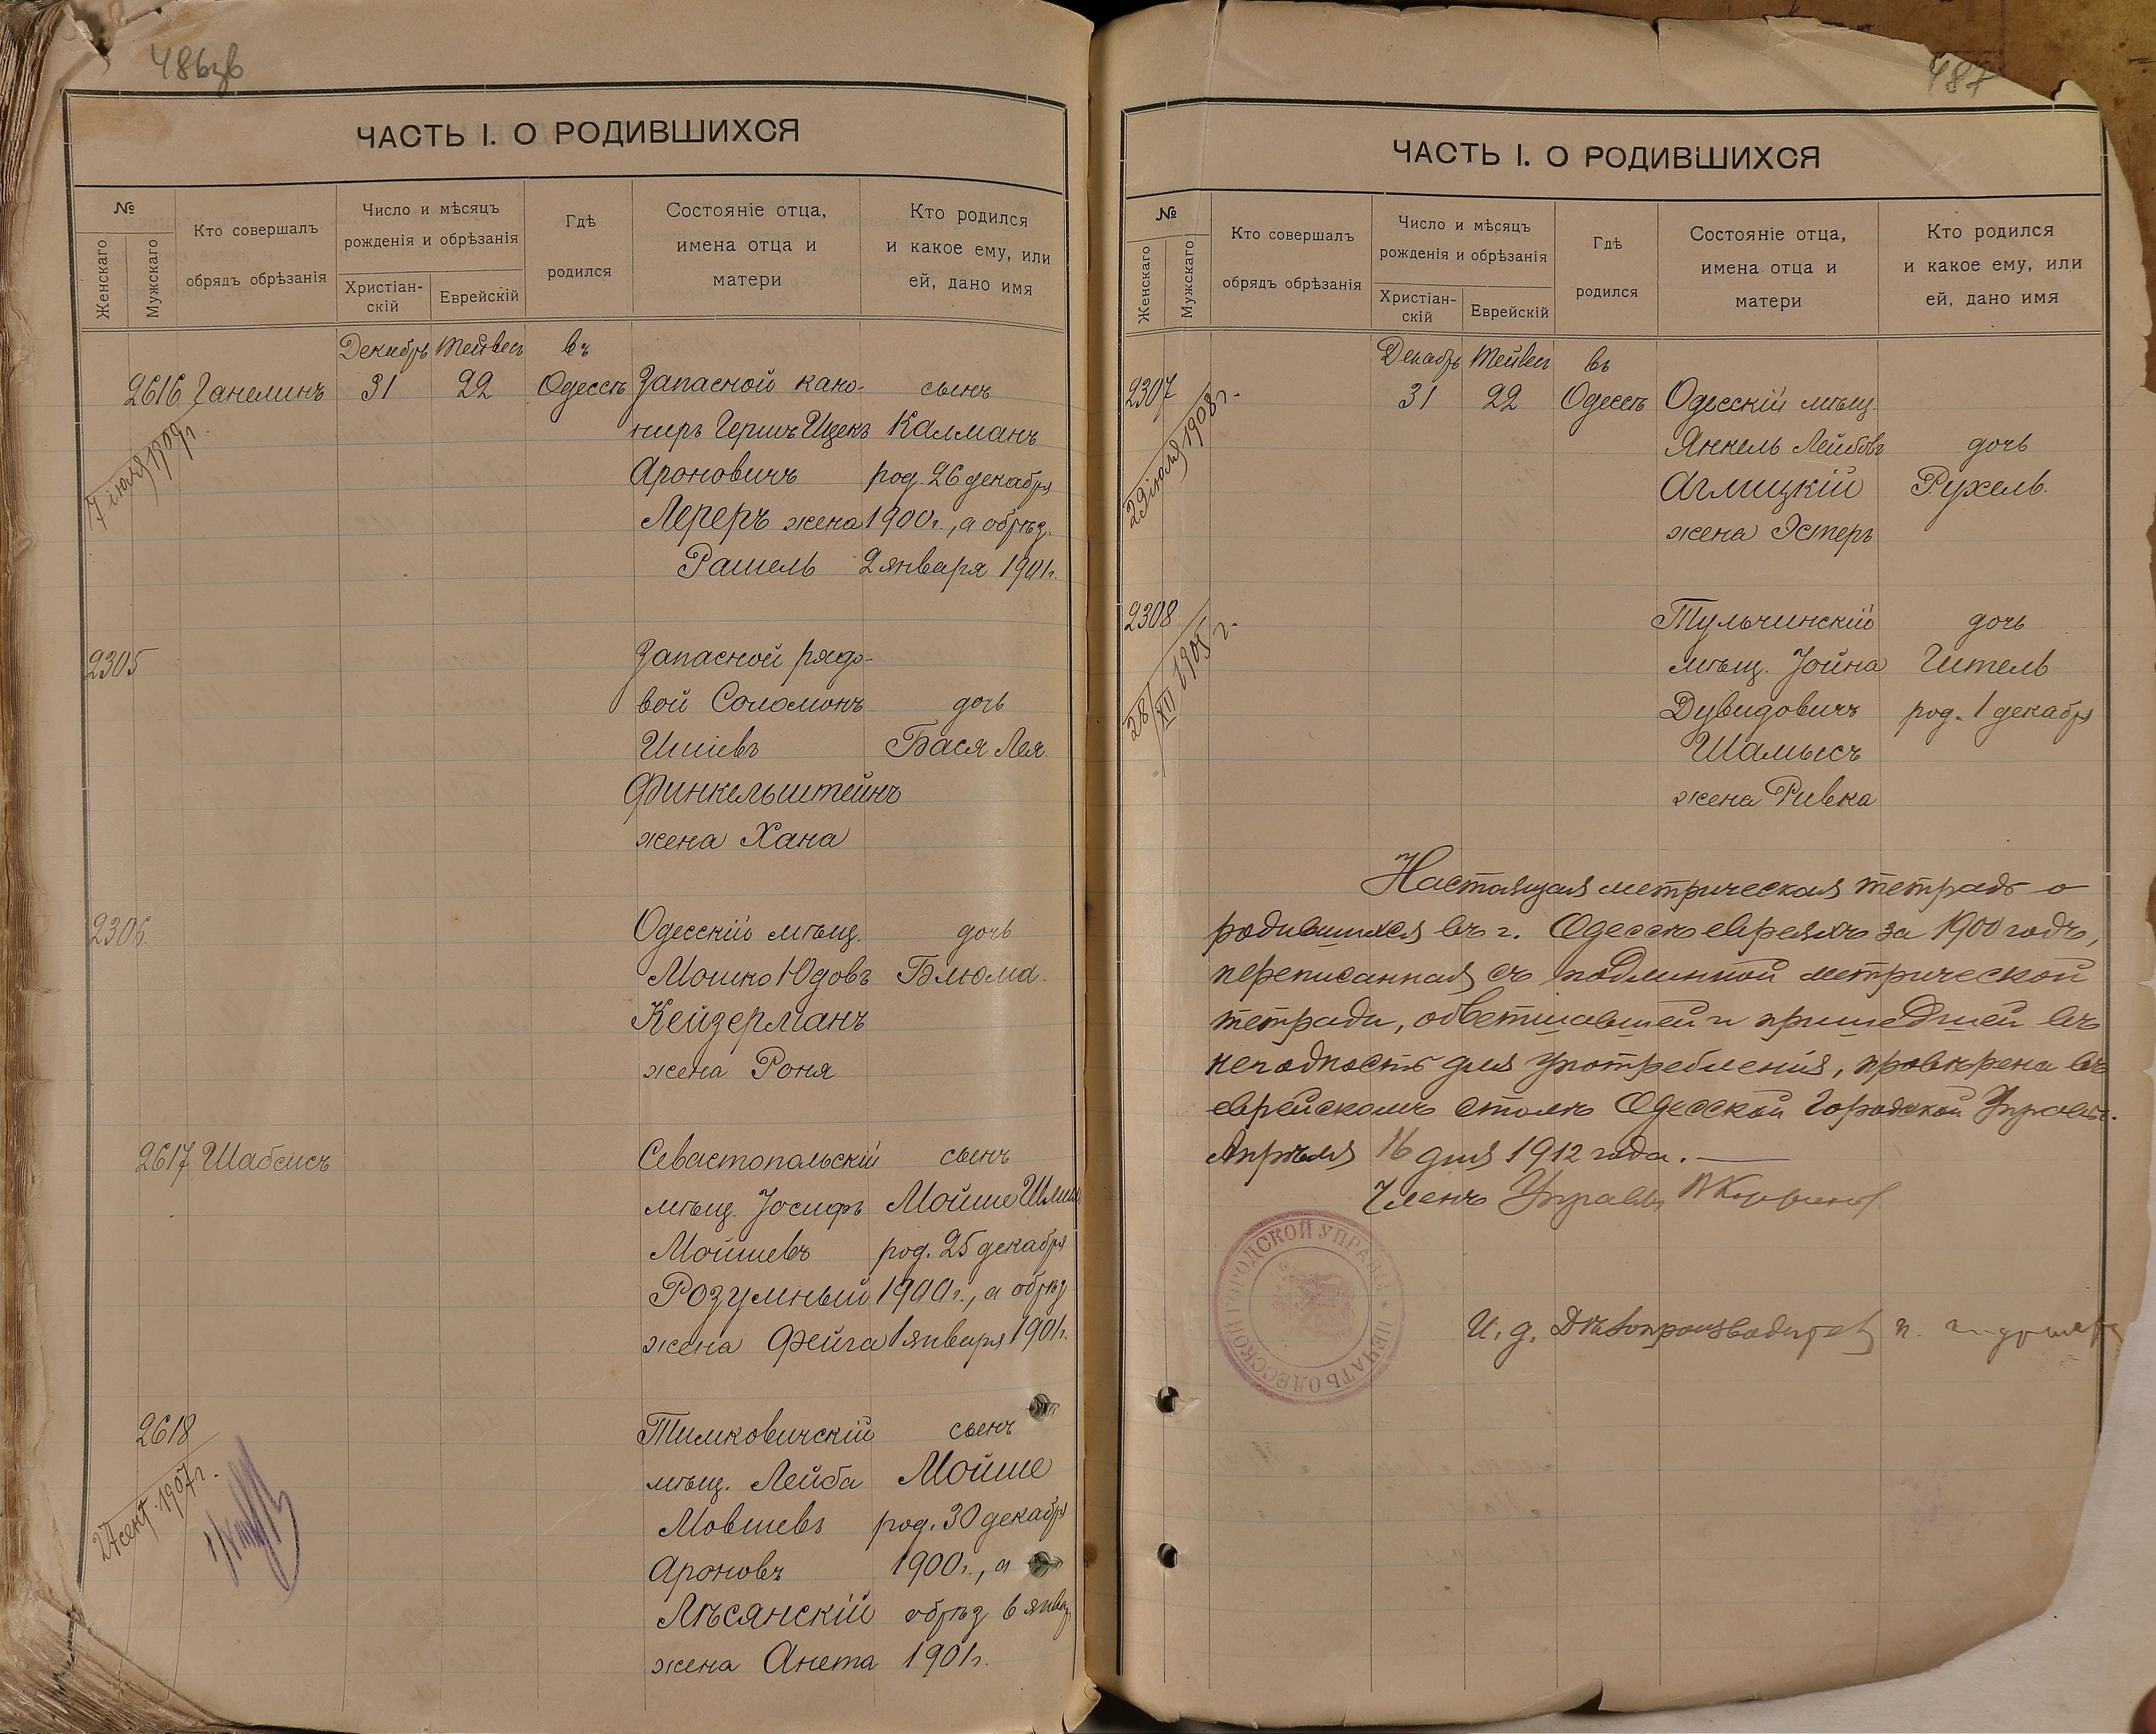 486зв
ЧАСТЬ I. О РОДИВШИХСЯ
№
Женскаго
Мужскаго
Кто совершалъ
обрядъ обрѣзанія
Число и мѣсяцъ
рожденія и обрѣзанія
Христіан-
скій
Еврейскій
Гдѣ
родился
Состояніе отца,
имена отца и
матери
Кто родился
и какое ему, или
ей, дано имя
Декабрь Тейвесъ въ
2616 Ганелинъ 31 22 Одессѣ Запасной кано- сынъ
ниръ Гершъ Ицекъ Калманъ
Ароновичъ род. 26 декабря
Лереръ жена 1900г., а обрѣз.
Рашель 2 января 1901г.
7 іюня 1909г.
2305 Запасной рядо-
вой Соломонъ дочь
Ишіевъ Бася Лея
Финкельштейнъ
жена Хана
2306. Одесскій мѣщ. дочь
Мошко Юдовъ Блюма.
Кейзерманъ
жена Роня
2617 Шабсисъ Севастопольскій сынъ
мѣщ. Іосифъ Мойше
Мойшевъ род. 25 декабря
Розумный 1900г., а обрѣз
жена Фейга 1 января 1901г.
2618 Тимковичскій сынъ
мѣщ. Лейба Мойше
Мовшевъ род. 30 декабря
Ароновъ 1900г., а
Лѣсянскій обрѣз 6 январ
жена Анета 1901г.
24 сент. 1907г.
487
ЧАСТЬ I. О РОДИВШИХСЯ
№
Женскаго
Мужскаго
Кто совершалъ
обрядъ обрѣзанія
Число и мѣсяцъ
рожденія и обрѣзанія
Христіан-
скій
Еврейскій
Гдѣ
родился
Состояніе отца,
имена отца и
матери
Кто родился
и какое ему, или
ей, дано имя
Декабрь Тейвесъ въ
2307 31 22 Одессѣ Одесскій мѣщ.
Янкель Лейбовъ дочь
Аглицкій Рухель.
жена Эстеръ
29 іюля 1908г.
2308 Тульчинскій дочь
мѣщ. Іойна Гитель
Дувидовичъ род. 1 декабря
Шамысъ
жена Ривка
28/XII 1905 г.
Настоящая метрическая тетрадь о
родившихся въ г. Одессѣ евреяхъ за 1900 годъ,
переписанная съ подлинной метрической
тетради, обветшавшей и пришедшей въ
негодность для употребленія, провѣрена въ
еврейскомъ столѣ Одесской Городской Управы.
Апрѣля 16 дня 1912 года.
Членъ Управы
ПЕЧАТЬ ОДЕССКОЙ ГОРОДСКОЙ УПРАВЫ
И. д. Дѣлопроизводителя